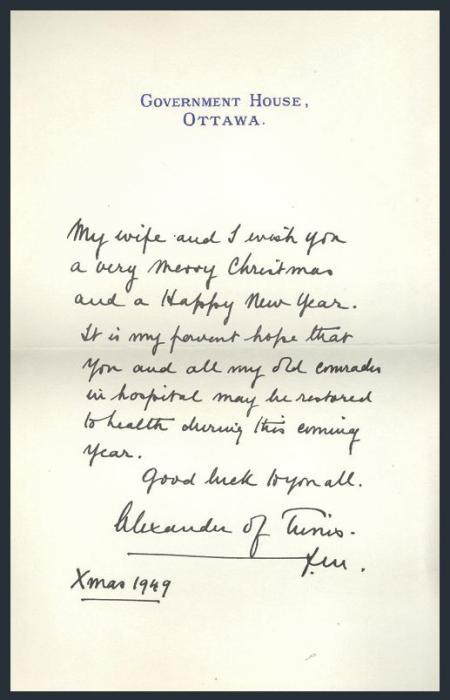 Government House,
Ottawa.
My wife and I wish you
a very Merry Christmas
and a Happy New Year.
It is my fervent hope that
you and all my old comrades
in hospital may be restored
to health during this coming
year.
Good luck to you all.
Alexander of Tunis.
F.M.
Xmas 1949